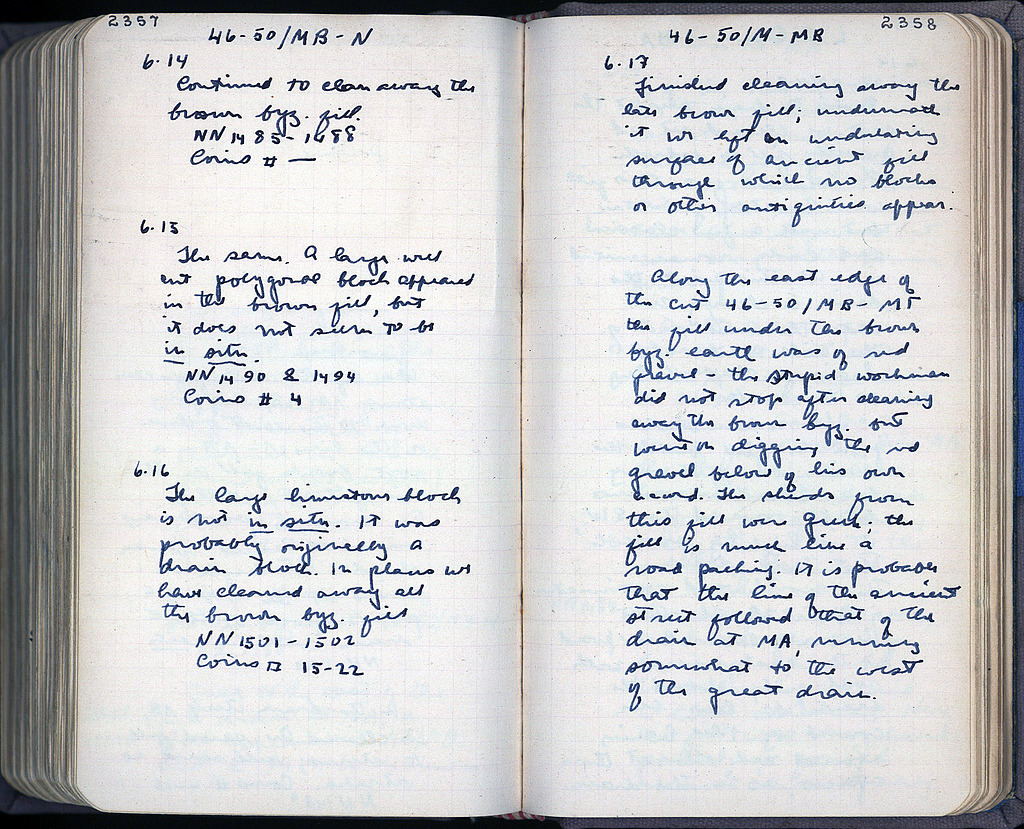 2357
46-50/MB-N
6.14
Continued to clean away the
brown byz. fill.
NN 1485-1488
Coins # —
6.15
The same. A large well
cut polygonal block appeared
in the brown fill, but
it does not seem to be
in situ.
NN 1490 & 1494
Coins # 4
6.16
The large limestone block
is not in situ. It was
probably originally a
drain block. In places we
have cleaned away all
the brown byz. fill
NN 1501-1502
Coins # 15-22
2358
46-50/M-MB
6.17
Finished cleaning away the
late brown fill; underneath
it we left an undulating
surface of ancient fill
through which no blocks
or other antiquities appear.
Along the east edge of
the cut 46-50/MB-MT
the fill under the brown
byz. earth was of red
gravel - the stupid workman
did not stop after cleaning
away the brown byz. but
went on digging the red
gravel below of his own
accord. The sherds from
this fill were Greek; the
fill is much like a
road packing. It is probable
that the line of the ancient
street followed that of the
drain at MA, running
somewhat to the west
of the great drain.